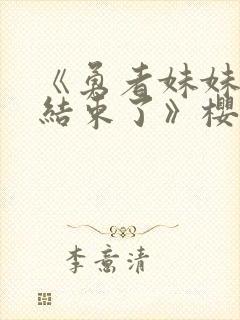 《勇者妹妹
結束了》櫻
李意清